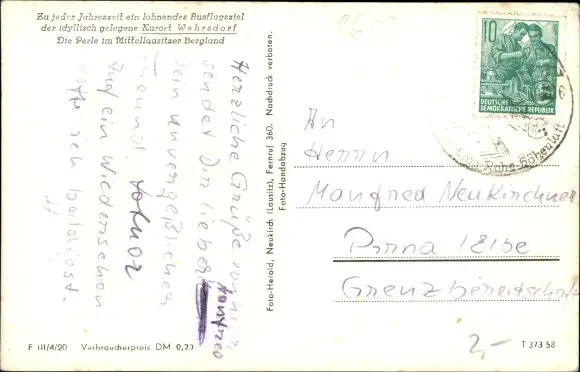 Zu jeder Jahreszeit ein lohnendes Ausflugsziel
der idyllisch gelegene Kurort Wehrsdorf
Die Perle im Mittellausitzer Bergland
Herzliche Grüße von hier
sendet Dir lieber Manfred
Dein unvergeßlicher
Freund Lothar
Auf ein Wiedersehen
hoffe ich baldigst.
F III/4/20 Verbraucherpreis DM 0,20
Foto-Herold, Neukirch (Lausitz), Fernruf 360. Nachdruck verboten.
Foto-Handabzug
10
DEUTSCHE
DEMOKRATISCHE REPUBLIK
Ruhe-Höhenluft
An
Herrn
Manfred Neukirchner
Pirna / Elbe
Grenzbereitschaft
2,-
T 373 58